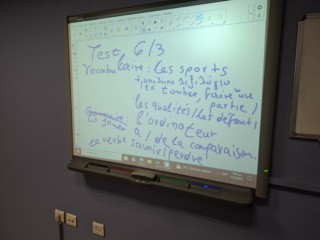 Test 6/3
Vocabulaire: les sports
ex tomber, faire une
partie/
les qualités/les défauts
l'ordinateur
Grammaire
jouer à / de la comparaison.
verbs savoir/perdre